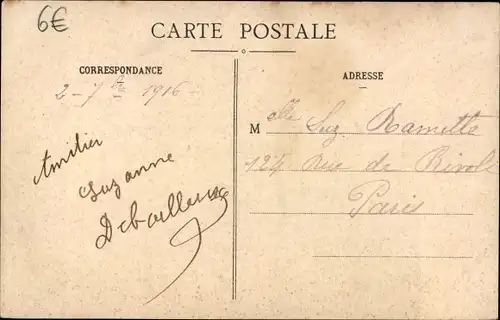 6€
CARTE POSTALE
CORRESPONDANCE
2-7bre 1916-
Amitiés
Suzanne
ADRESSE
Melle Suz. Ramette
124 Rue de Rivoli
Paris